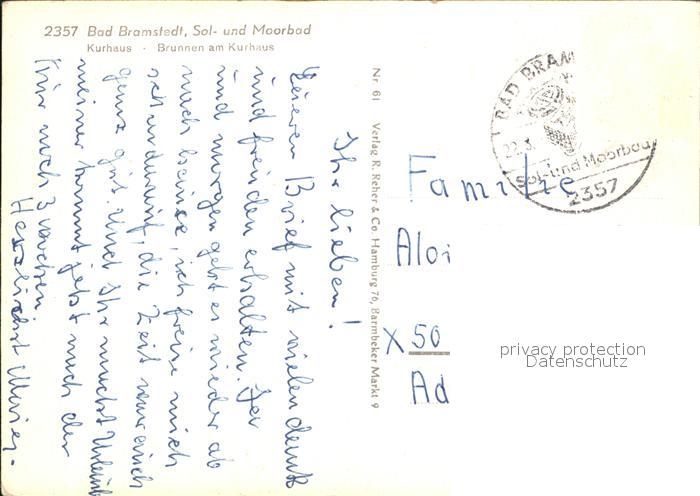 2357 Bad Bramstedt, Sol- und Moorbad
Kurhaus · Brunnen am Kurhaus
Ihr lieben!
Eueren Brief mit vielen dank
und freuden erhalten. Der
und morgen geht es wieder ab
nach hause, ich freue mich
schon darauf, die Zeit war auch
ganz gut. Und Ihr macht Urlaub
meiner kommt jetzt nach der
Kur noch 3 wochen.
Herzlichst
Nr. 61 Verlag R. Reher & Co. Hamburg 76, Barmbeker Markt 9
BAD BRAM
22.3.
Sol-und Moorbad
2357
Familie
Aloi
X 50
Ad
privacy protection
Datenschutz